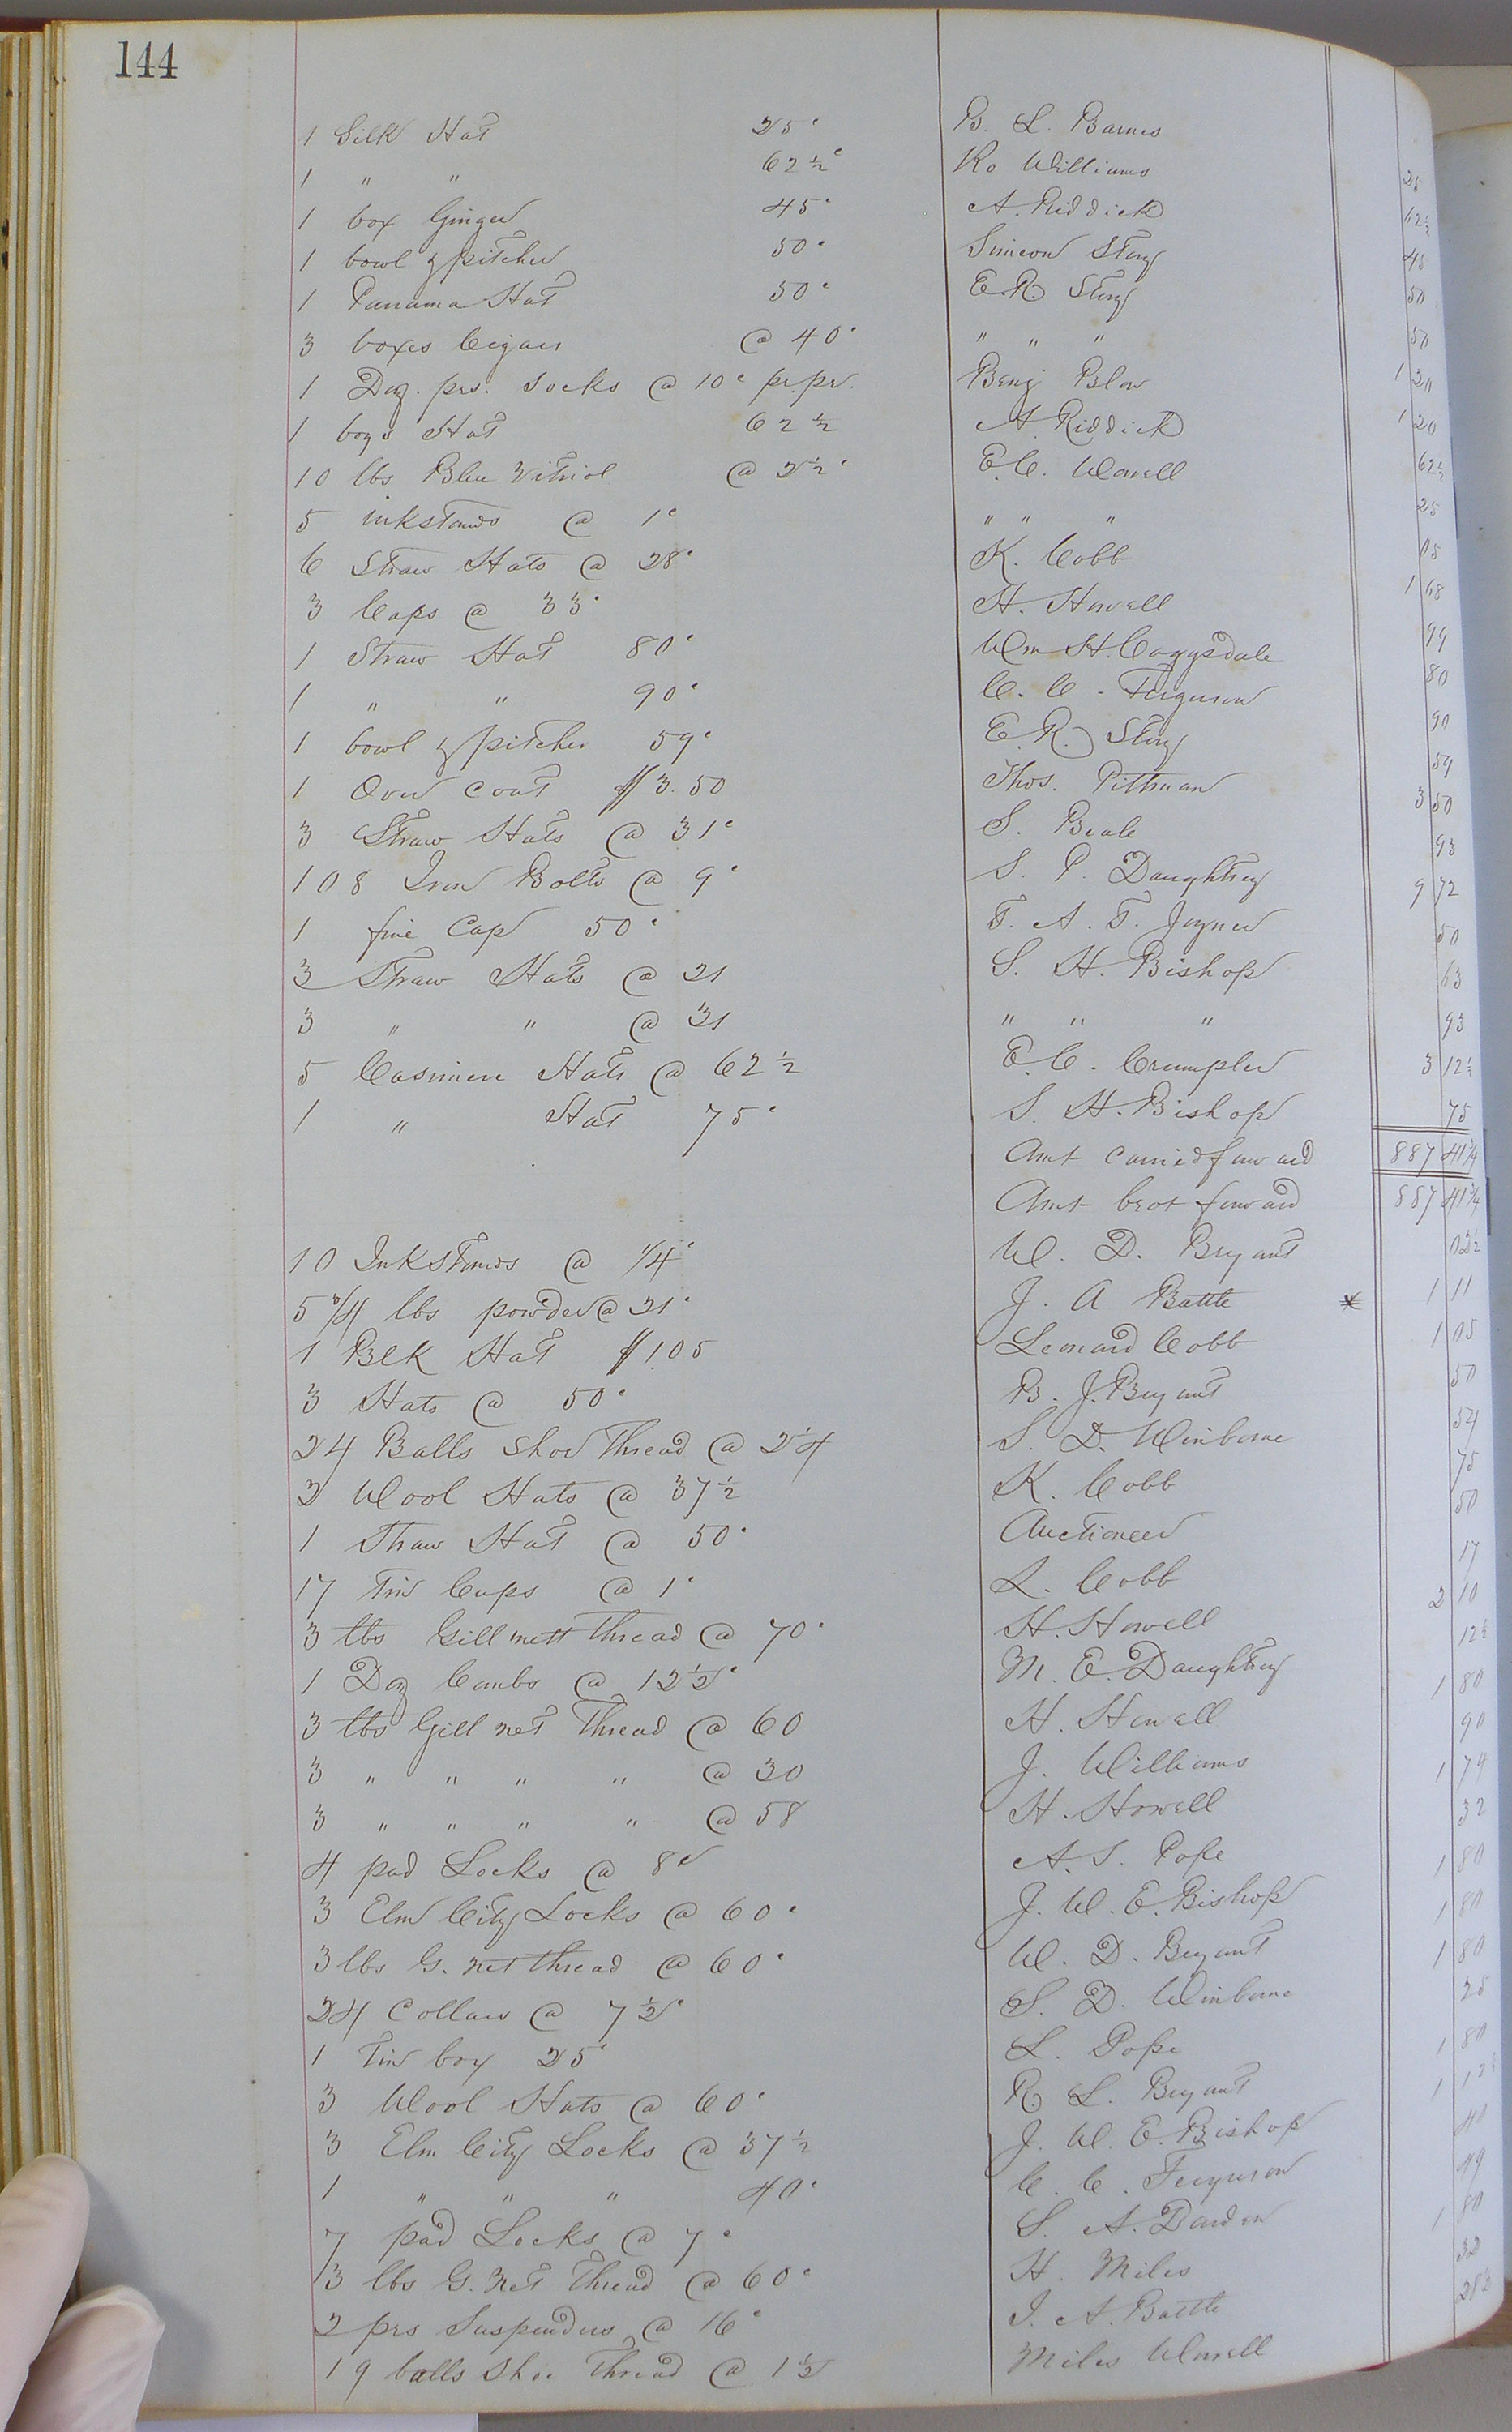 144
1 Silk Hat 25c B. L. Barnes 25
1 " " 62 1/2c Ro Williams 62 1/2
1 box Ginger 45c A. Riddick 45
1 bowl & pitcher 50c Simeon Story 50
1 Panama Hat 50c E R Story 50
3 boxes Cigars @ 40c " " " 1 20
1 Doz. prs. Socks @ 10c pr. pr. Benj Blow 1 20
1 boys Hat 62 1/2 A Riddick 62 1/2
10 lbs Blue Vitriol @ 2 1/2c E. C. Worrell 25
5 inkstands @ 1c " " " 05
6 Straw Hats @ 28c K. Cobb 1 68
3 Caps @ 33c H. Howell 99
1 Straw Hat 80c Wm H. Coggsdale 80
1 " " 90c C. C. Ferguson 90
1 bowl & pitcher 59c E. R. Story 59
1 Over Coat $3.50 Thos. Pittman 3 50
3 Straw Hats @ 31c S. Beale 93
108 Iron Bolts @ 9c S. P. Daughtrey 9 72
1 fine Cap 50c T. A. T. Joyner 50
3 Straw Hats @ 21 S. H. Bishop 63
3 " " @ 31 " " " 93
5 Casimere Hats @ 62 1/2 E. C. Crumpler 3 12 1/2
1 " Hat 75c S. H. Bishop 75
Amt carried forward 887 41 3/4
Amt brot forward 887 41 3/4
10 Inkstands @ 1/4c W. D. Bryant 02 1/2
5 3/4 lbs powder @ 21c J. A Battle * 1 11
1 Blk Hat $1.05 Leonard Cobb 1 05
3 Hats @ 50c B. J. Bryant 50
24 Balls Shoe Thread @ 2 1/4 S. D. Winborne 54
2 Wool Hats @ 37 1/2 K. Cobb 75
1 Straw Hat @ 50c Auctioneer 50
17 Tin Cups @ 1c L. Cobb 17
3 lbs Gill nett thread @ 70c H. Howell 2 10
1 Doz Combs @ 12 1/2c M. E. Daughtrey 12 1/2
3 lbs Gill net Thread @ 60 H. Howell 1 80
3 " " " " @ 30 J. Williams 90
3 " " " " @ 58 H. Howell 1 74
4 pad Locks @ 8c A. S. Pope 32
3 Elm City Locks @ 60c J. W. E. Bishop 1 80
3 lbs G. net thread @ 60c W. D. Bryant 1 80
24 Collars @ 7 1/2c S. D. Winborne 1 80
1 Tin box 25c L. Pope 25
3 Wool Hats @ 60c R. L. Bryant 1 80
3 Elm City Locks @ 37 1/2 J. W. E. Bishop 1 12
1 " " " 40c C. C. Ferguson 40
7 pad Locks @ 7c S. A. Darden 49
3 lbs G. Net Thread @ 60c H. Miles 1 80
2 prs Suspenders @ 16c J. A. Battle 32
19 balls Shoe Thread @ 1 1/2 Miles Worrell 28 1/2